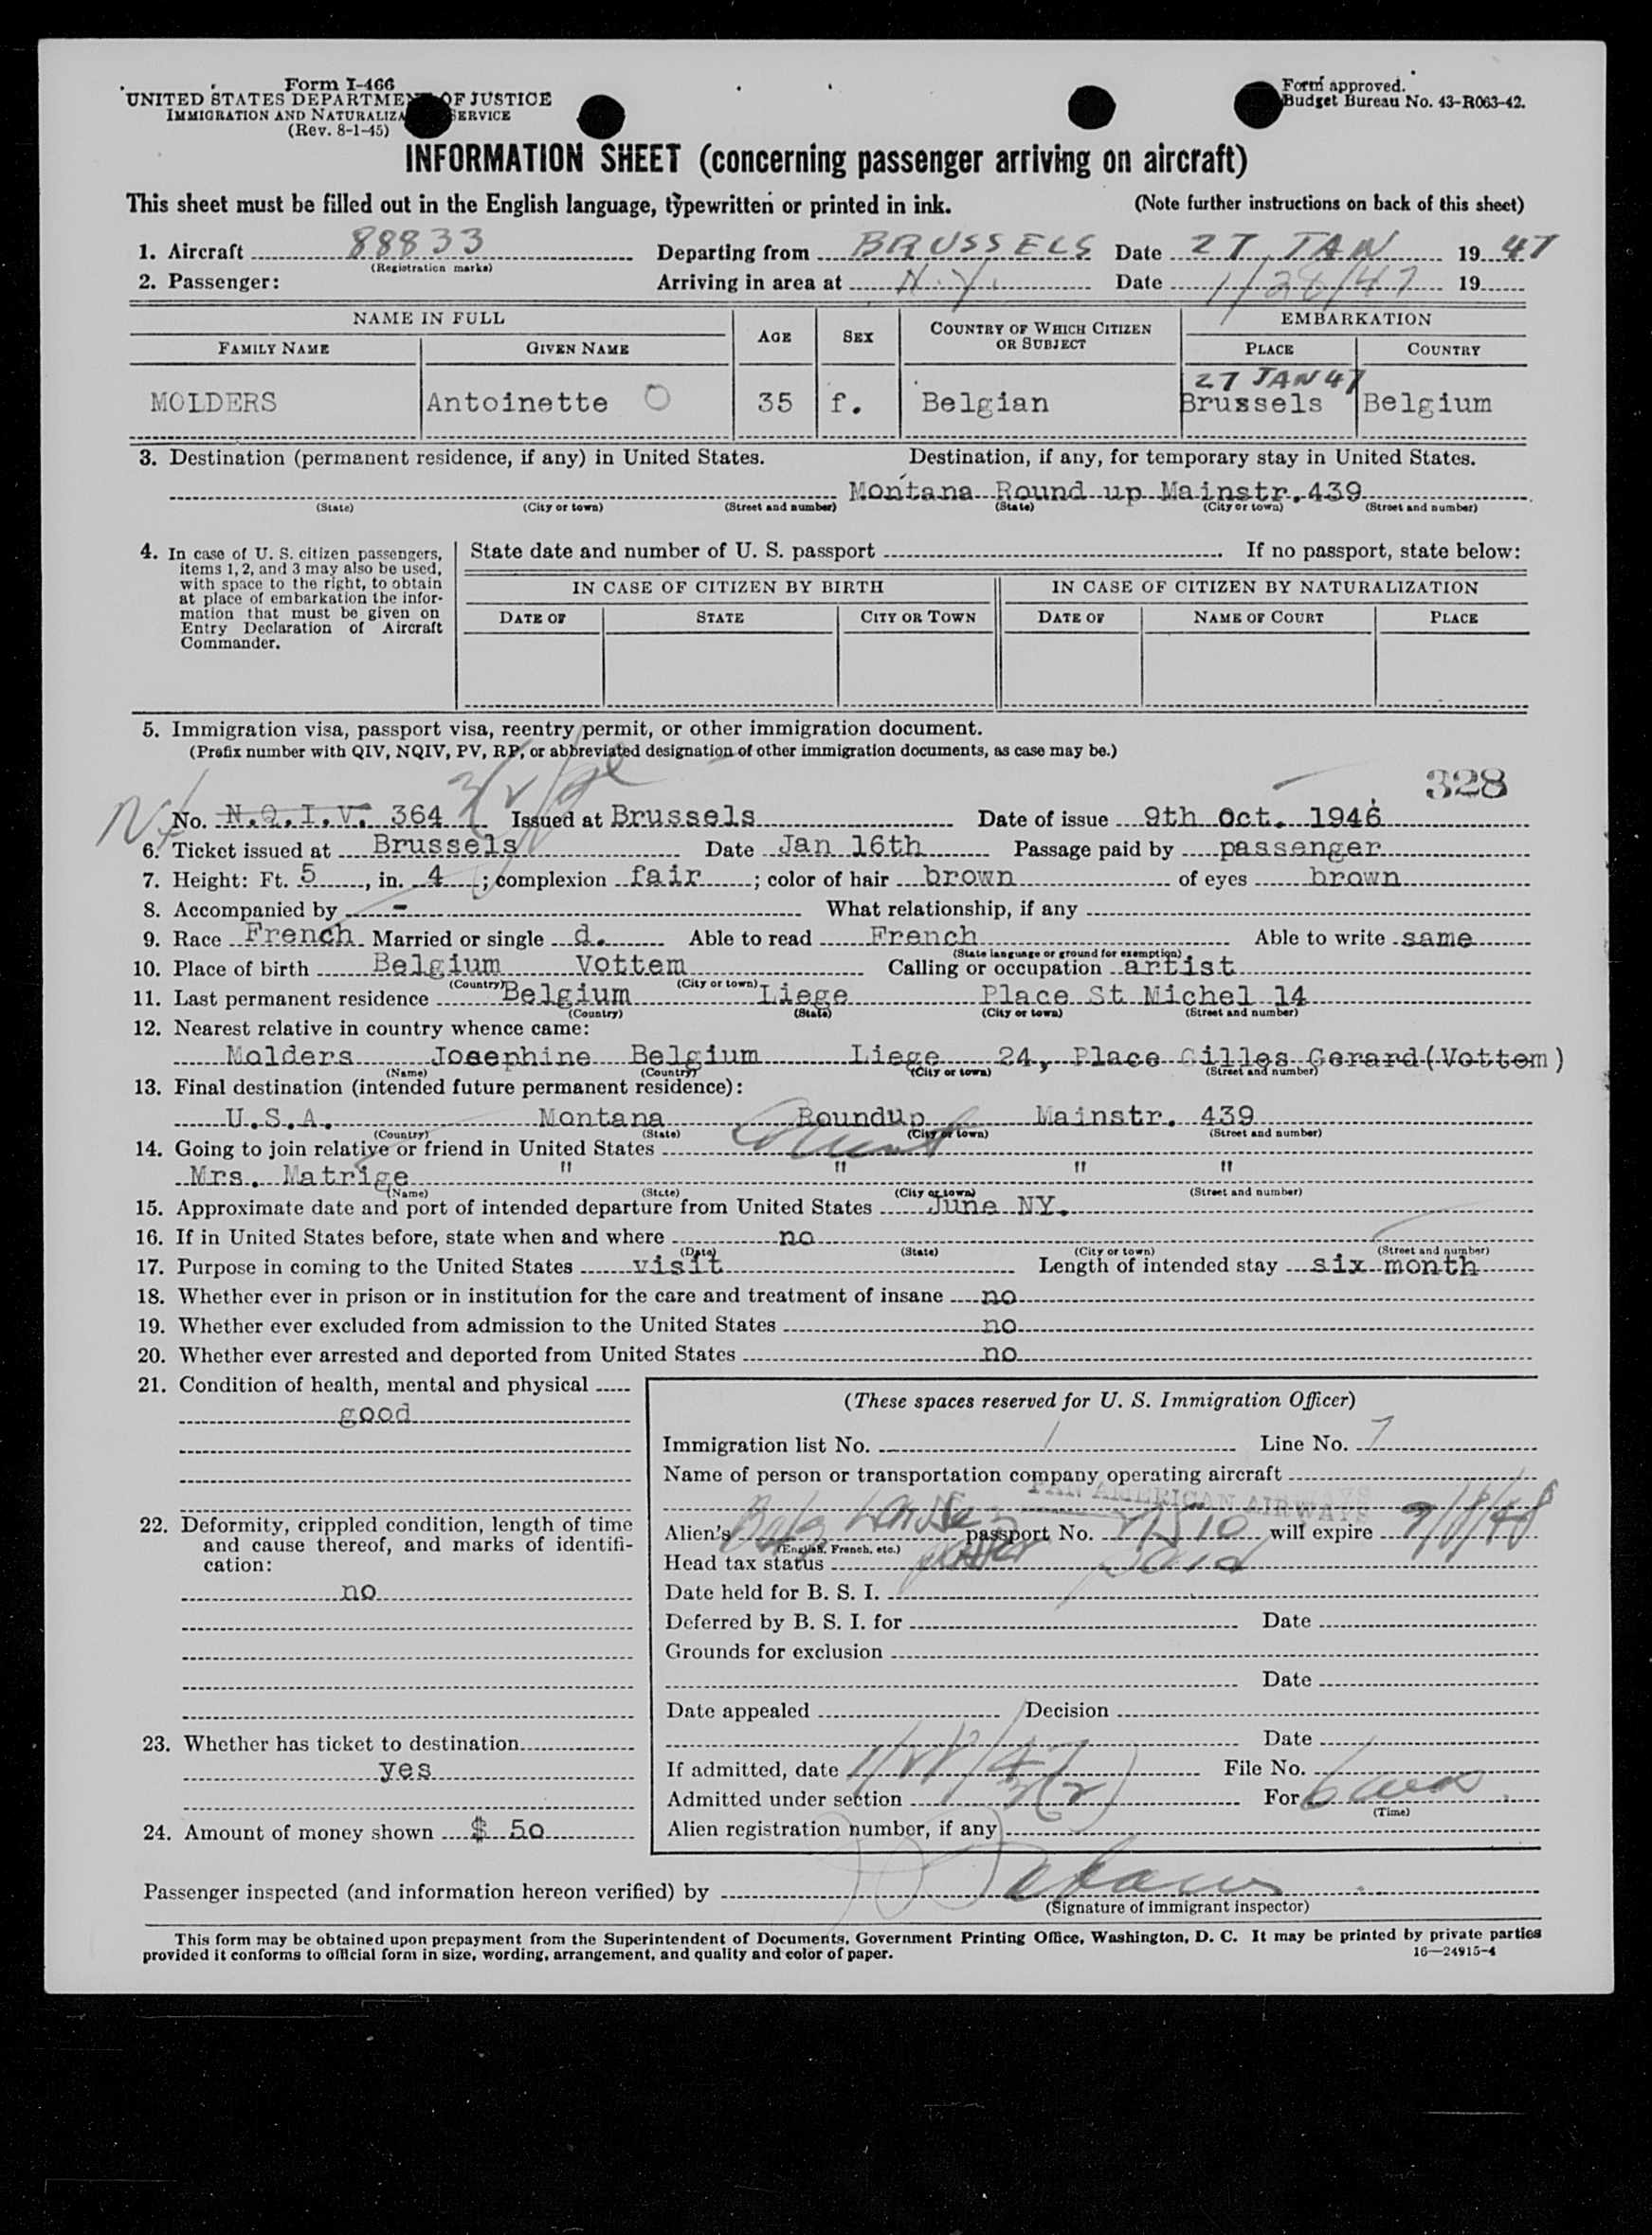 Form I-466
UNITED STATES DEPARTMENT OF JUSTICE
IMMIGRATION AND NATURALIZA SERVICE
(Rev. 8-1-45)
Form approved.
Budget Bureau No. 43-R063-42.
INFORMATION SHEET (concerning passenger arriving on aircraft)
This sheet must be filled out in the English language, typewritten or printed in ink. (Note further instructions on back of this sheet)
1. Aircraft 88833 Departing from BRUSSELS Date 27 JAN 1947
(Registration marks)
2. Passenger: Arriving in area at N.Y. Date 1/28/47 19
NAME IN FULL AGE SEX COUNTRY OF WHICH CITIZEN OR SUBJECT EMBARKATION
FAMILY NAME GIVEN NAME PLACE COUNTRY
27 JAN 47
MOLDERS Antoinette O 35 f. Belgian Brussels Belgium
3. Destination (permanent residence, if any) in United States. Destination, if any, for temporary stay in United States.
Montana Round up Mainstr. 439
(State) (City or town) (Street and number) (State) (City or town) (Street and number)
4. In case of U. S. citizen passengers, items 1, 2, and 3 may also be used, with space to the right, to obtain at place of embarkation the information that must be given on Entry Declaration of Aircraft Commander.
State date and number of U. S. passport . If no passport, state below:
IN CASE OF CITIZEN BY BIRTH IN CASE OF CITIZEN BY NATURALIZATION
DATE OF STATE CITY OR TOWN DATE OF NAME OF COURT PLACE
5. Immigration visa, passport visa, reentry permit, or other immigration document.
(Prefix number with QIV, NQIV, PV, RP, or abbreviated designation of other immigration documents, as case may be.)
328
No. N.Q.I.V. 364 Issued at Brussels Date of issue 9th Oct. 1946
6. Ticket issued at Brussels Date Jan 16th Passage paid by passenger
7. Height: Ft. 5, in. 4; complexion fair; color of hair brown of eyes brown
8. Accompanied by - What relationship, if any
9. Race French Married or single d. Able to read French Able to write same
(State language or ground for exemption)
10. Place of birth Belgium Vottem Calling or occupation artist
(Country) (City or town)
11. Last permanent residence Belgium Liege Place St Michel 14
(Country) (State) (City or town) (Street and number)
12. Nearest relative in country whence came:
Molders Josephine Belgium Liege 24, Place Gilles Gerard (Vottem)
(Name) (Country) (City or town) (Street and number)
13. Final destination (intended future permanent residence):
U.S.A. Montana Roundup Mainstr. 439
(Country) (State) (City or town) (Street and number)
14. Going to join relative or friend in United States
Mrs. Matrige " " " "
(Name) (State) (City or town) (Street and number)
15. Approximate date and port of intended departure from United States June NY.
16. If in United States before, state when and where no
(Date) (State) (City or town) (Street and number)
17. Purpose in coming to the United States visit Length of intended stay six month
18. Whether ever in prison or in institution for the care and treatment of insane no
19. Whether ever excluded from admission to the United States no
20. Whether ever arrested and deported from United States no
21. Condition of health, mental and physical
good
22. Deformity, crippled condition, length of time and cause thereof, and marks of identification:
no
23. Whether has ticket to destination
yes
24. Amount of money shown $ 50
(These spaces reserved for U. S. Immigration Officer)
Immigration list No. 1 Line No. 7
Name of person or transportation company operating aircraft
PAN AMERICAN AIRWAYS
Alien's passport No. will expire 9/8/48
(English, French, etc.)
Head tax status paid
Date held for B. S. I.
Deferred by B. S. I. for Date
Grounds for exclusion
Date
Date appealed Decision
Date
If admitted, date 1/28/47 File No.
Admitted under section 3(2) For 6
(Time)
Alien registration number, if any
Passenger inspected (and information hereon verified) by
(Signature of immigrant inspector)
This form may be obtained upon prepayment from the Superintendent of Documents, Government Printing Office, Washington, D. C. It may be printed by private parties
provided it conforms to official form in size, wording, arrangement, and quality and color of paper. 16—24915-4